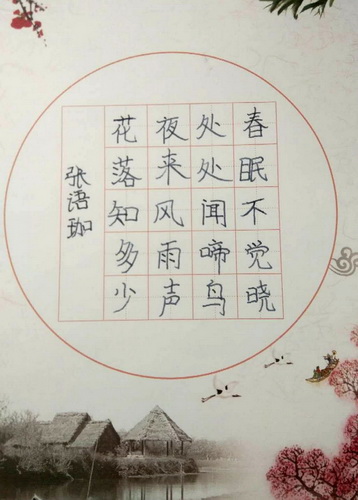 春眠不觉晓
处处闻啼鸟
夜来风雨声
花落知多少
张语珈